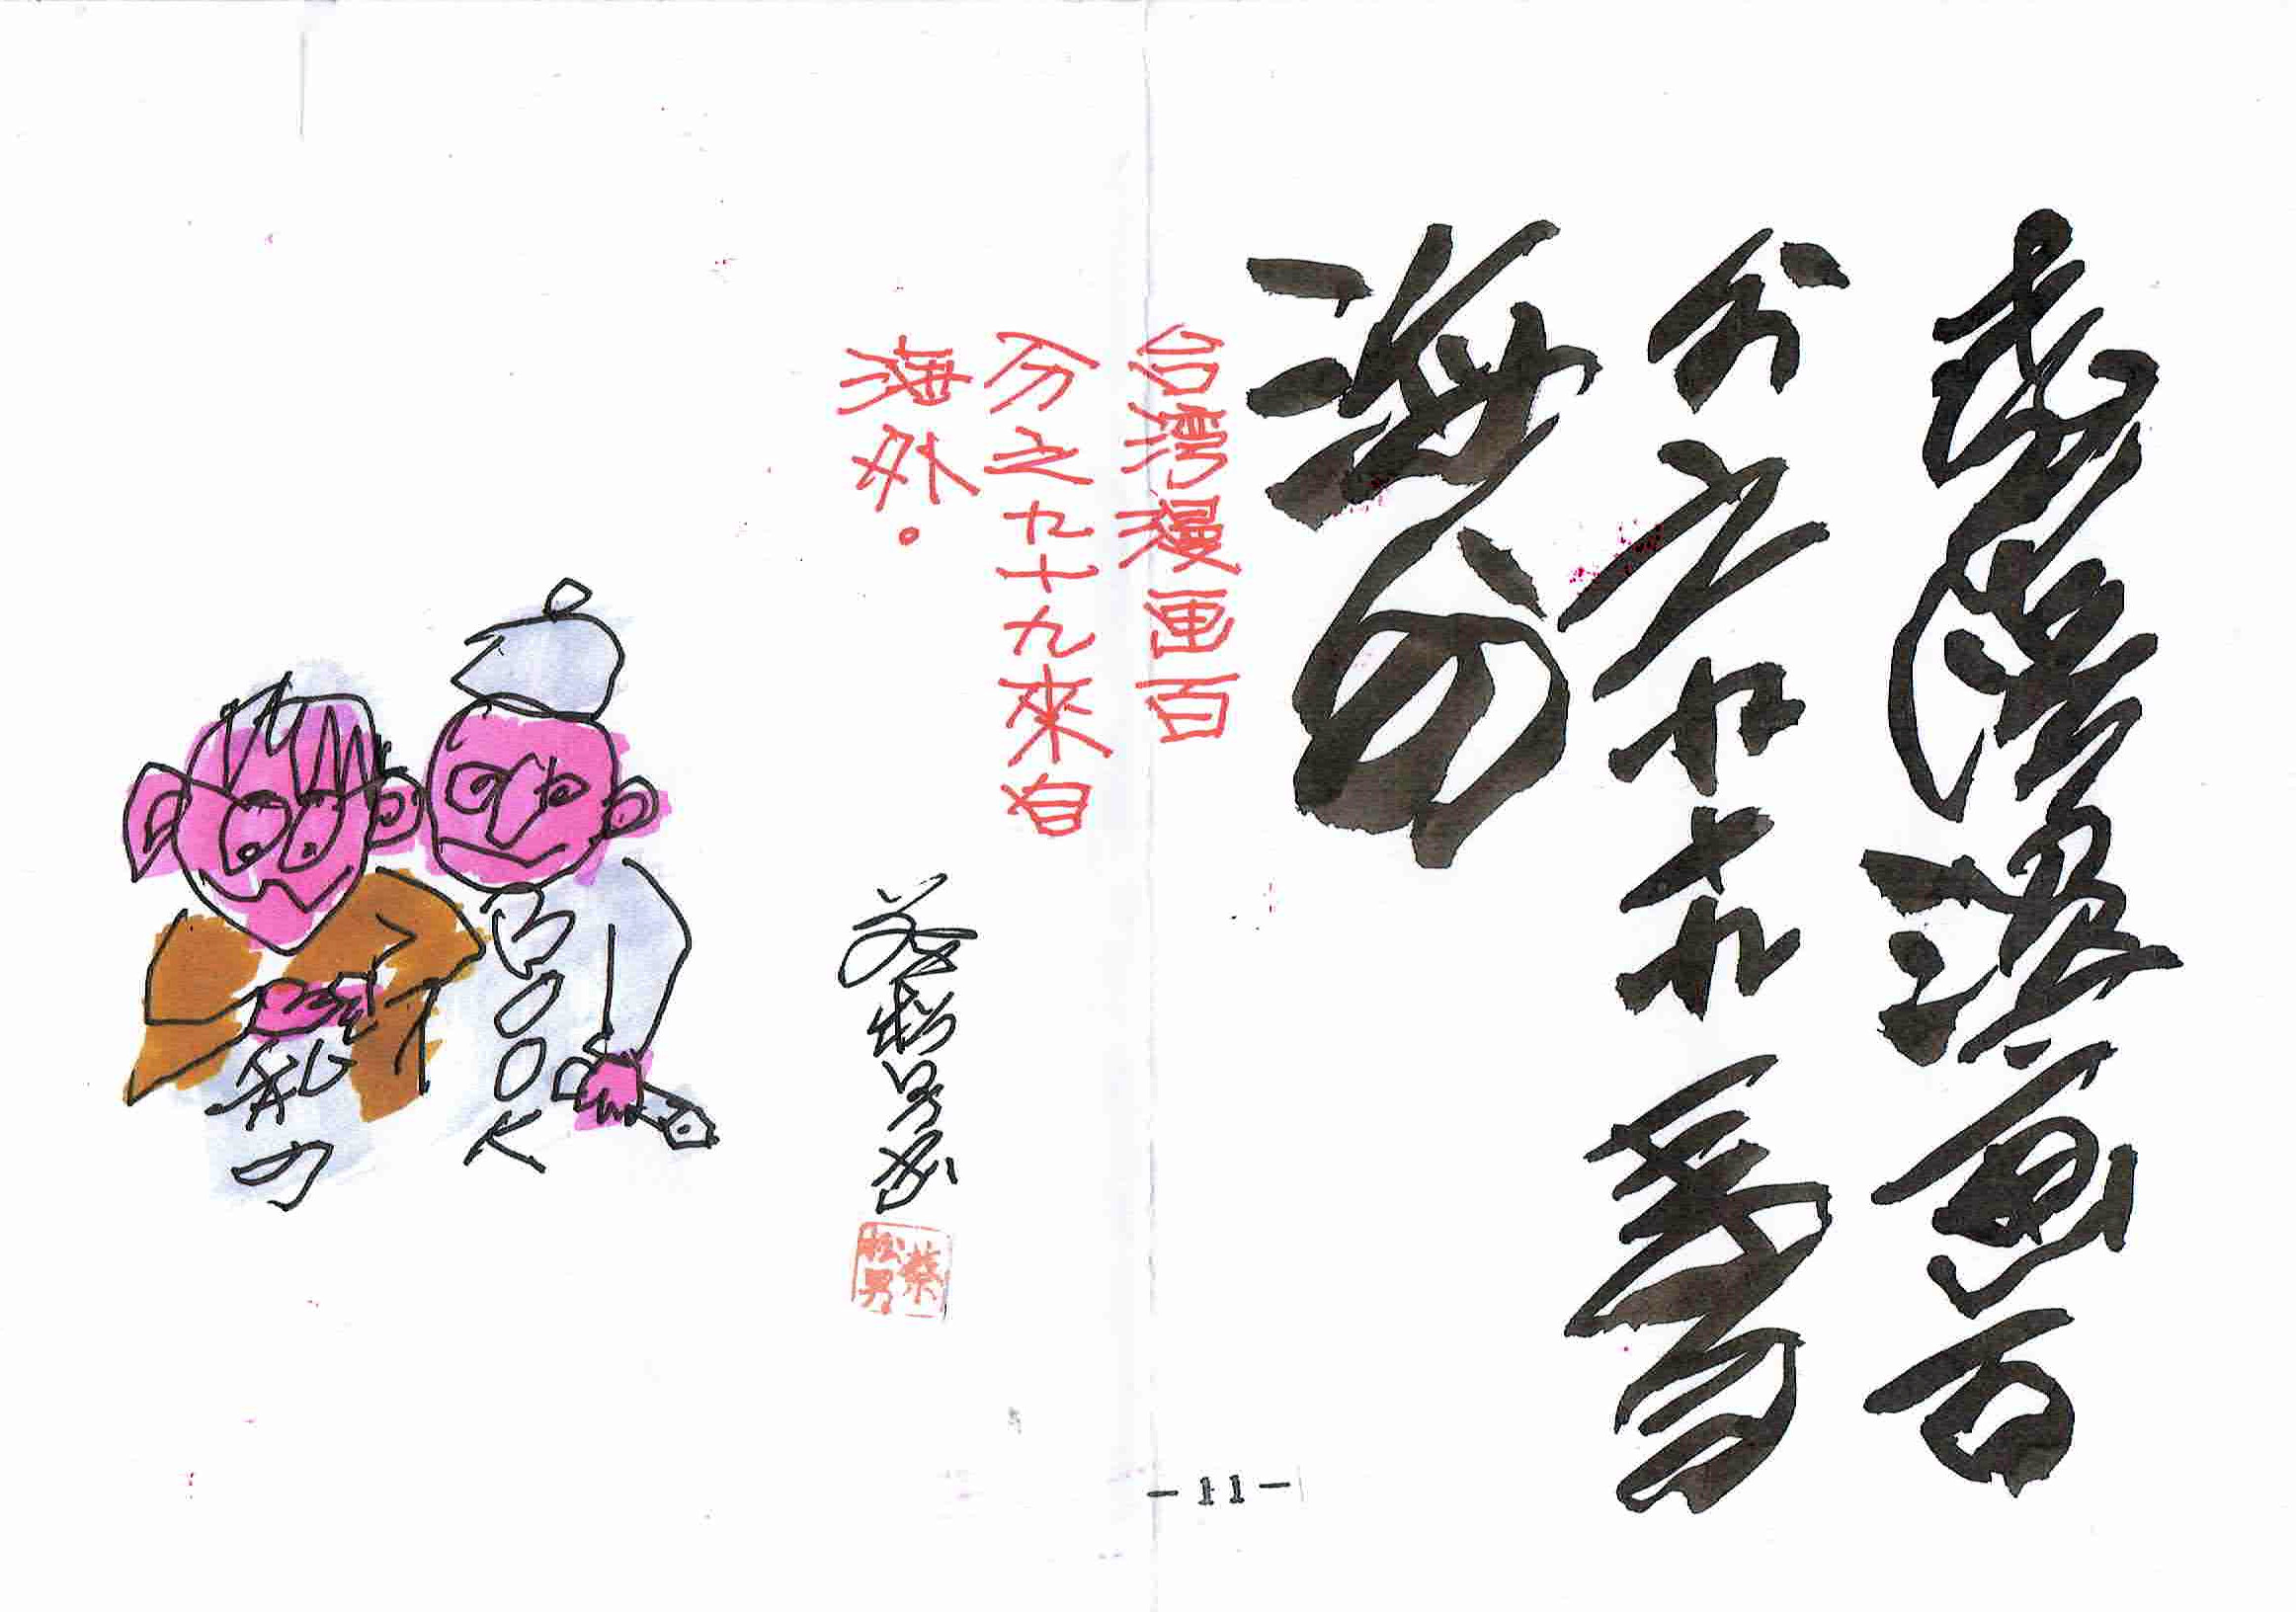 臺灣漫畫百
分之九十九來自
海外
台湾漫画百
分之九十九來自
海外。
蔡松男
蔡松男
BOOK
-11-